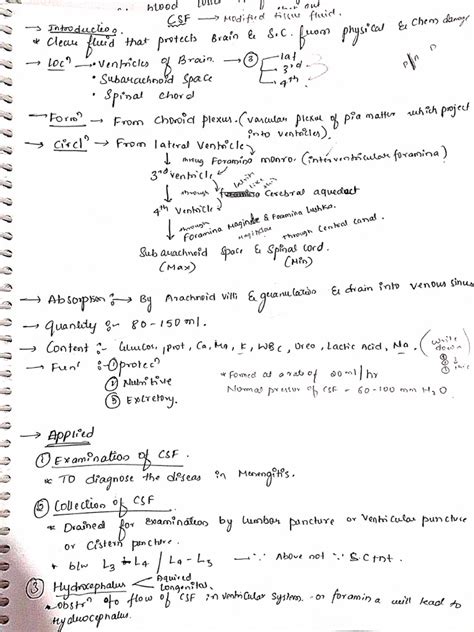 blood
CSF → Modified tissue fluid.
→ Introduction.
* Clear fluid that protects Brain & S.C. from physical & Chem damage
→ Locⁿ → • Ventricles of Brain. → ③ lat
3rd
4th
• Subarachnoid Space
• Spinal chord
→ Formⁿ → From Choroid plexus. (vascular plexus of pia matter which project
into ventricles).
→ Circlⁿ → From lateral Ventricle
↓ through Foramina monro. (interventricular foramina)
3rd ventricle
↓ through Cerebral aqueduct
write like this
4th Ventricle
↓ through Foramina Magindie & Foramina lushka.
through Central canal.
Subarachnoid Space & Spinal cord.
(Max) (Min)
→ Absorption :→ By Arachnoid villi & granulation & drain into venous sinus
→ Quantity :- 80-150 ml.
→ Content :- Glucose, prot, Ca, Mg, K, WBC, Urea, Lactic Acid, Na. (write down
→ Funⁿ :- ① protecⁿ
② Nutritive
③ Excretory.
* Formed at a rate of 20 ml/hr
Normal pressure of CSF - 60-100 mm H2O
→ Applied
① Examination of CSF.
* TO diagnose the diseas in Menengitis.
② Collection of CSF
* Drained for examination by lumbar puncture or ventricular puncture
or Cistern puncture.
* b/w L3 - L4 / L4 - L5 → ∵ Above not ∵ S.C
③ Hydrocephalus Aquired
Longenital.
* obstrⁿ of flow of CSF in ventricular system or foramina will lead to
Hydrocephalus.